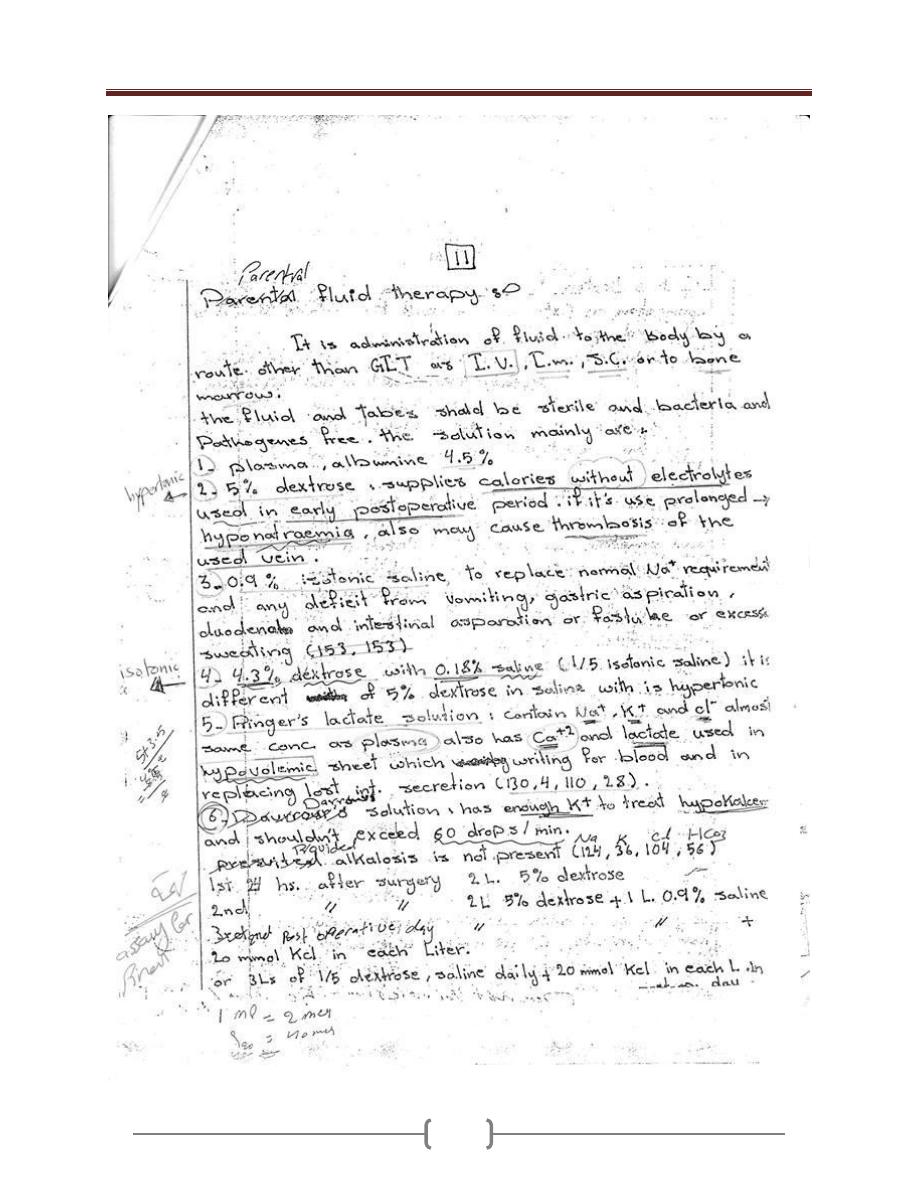 11
Parentral
Parental fluid therapy :-
It is administration of fluid to the body by a
route other than GIT as I.V., I.m., S.C. or to bone
marrow.
the fluid and tabes shold be sterile and bacteria and
Pathogenes free. the solution mainly are :
1- plasma, albumine 4.5%
hypertonic
2- 5% dextrose : supplies calories without electrolytes
used in early postoperative period. if it's use prolonged →
hyponatraemia, also may cause thrombosis of the
used vein.
3- 0.9% isotonic saline, to replace normal Na+ requirement
and any deficit from vomiting, gastric aspiration,
duodenal and intestinal asparation or or excess
sweating (153, 153)
isotonic
4- 4.3% dextrose with 0.18% saline (1/5 isotonic saline) it is
different of 5% dextrose in saline with is hypertonic
5- Ringer's lactate solution : contain Na+, K+ and cl- almost
same conc as plasma also has Ca+2 and lactate used in
hypovolemic sheet which writing for blood and in
replacing lost int. secretion (130, 4, 110, 28).
Darrow's
6- solution : has enough K+ to treat hypokalcem
and shouldn't exceed 60 drops/min.
Provided Na K Cl HCo3
alkalosis is not present (124, 36, 104, 56)
1st 24 hs. after surgery 2 L. 5% dextrose
2nd " " 2L 5% dextrose + 1 L. 0.9% saline
3rd post operative day " " +
20 mmol Kcl in each Liter.
or 3Ls of 1/5 dextrose, saline daily + 20 mmol Kcl in each L. in
day
1 ml = 2 meq